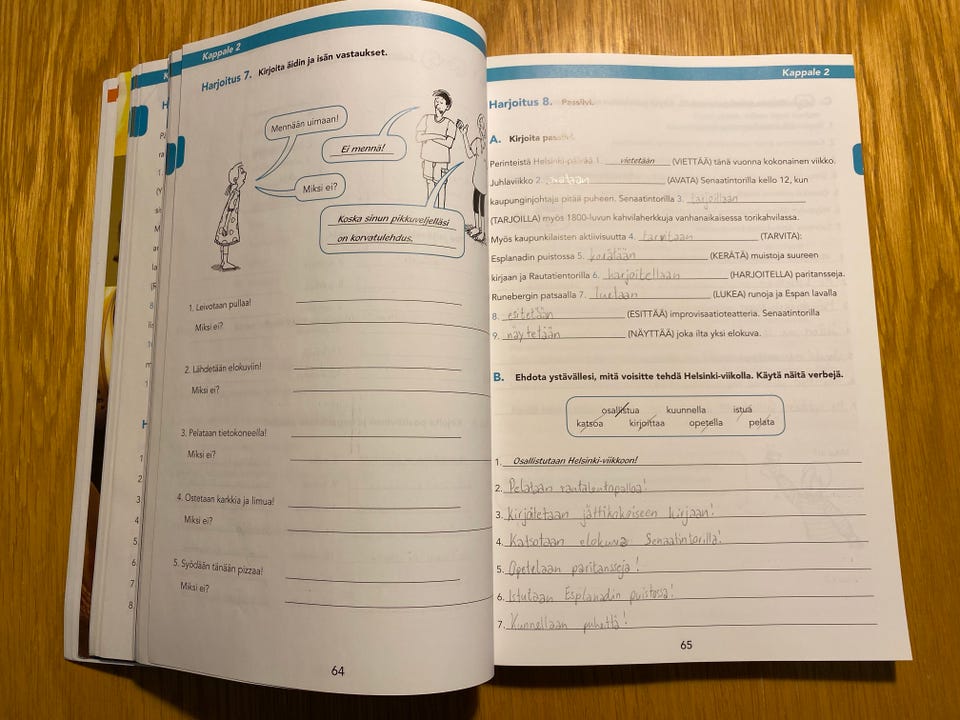 Kappale 2
Harjoitus 7. Kirjoita äidin ja isän vastaukset.
Mennään uimaan!
Ei mennä!
Miksi ei?
Koska sinun pikkuveljelläsi
on korvatulehdus.
1. Leivotaan pullaa!
Miksi ei?
2. Lähdetään elokuviin!
Miksi ei?
3. Pelataan tietokoneella!
Miksi ei?
4. Ostetaan karkkia ja limua!
Miksi ei?
5. Syödään tänään pizzaa!
Miksi ei?
64
Kappale 2
Harjoitus 8. Passiivi.
A. Kirjoita passiivi.
Perinteistä Helsinki-päivää 1. vietetään (VIETTÄÄ) tänä vuonna kokonainen viikko.
Juhlaviikko 2. avataan (AVATA) Senaatintorilla kello 12, kun
kaupunginjohtaja pitää puheen. Senaatintorilla 3. tarjoillaan
(TARJOILLA) myös 1800-luvun kahvilaherkkuja vanhanaikaisessa torikahvilassa.
Myös kaupunkilaisten aktiivisuutta 4. tarvitaan (TARVITA):
Esplanadin puistossa 5. kerätään (KERÄTÄ) muistoja suureen
kirjaan ja Rautatientorilla 6. harjoitellaan (HARJOITELLA) paritansseja.
Runebergin patsaalla 7. luetaan (LUKEA) runoja ja Espan lavalla
8. esitetään (ESITTÄÄ) improvisaatioteatteria. Senaatintorilla
9. näytetään (NÄYTTÄÄ) joka ilta yksi elokuva.
B. Ehdota ystävällesi, mitä voisitte tehdä Helsinki-viikolla. Käytä näitä verbejä.
osallistua kuunnella istua
katsoa kirjoittaa opetella pelata
1. Osallistutaan Helsinki-viikkoon!
2. Pelataan rantalentopalloa!
3. Kirjoitetaan jättikokoiseen kirjaan!
4. Katsotaan elokuva Senaatintorilla!
5. Opetelaan paritansseja!
6. Istutaan Esplanadin puistossa!
7. Kunnellaan puhetta!
65